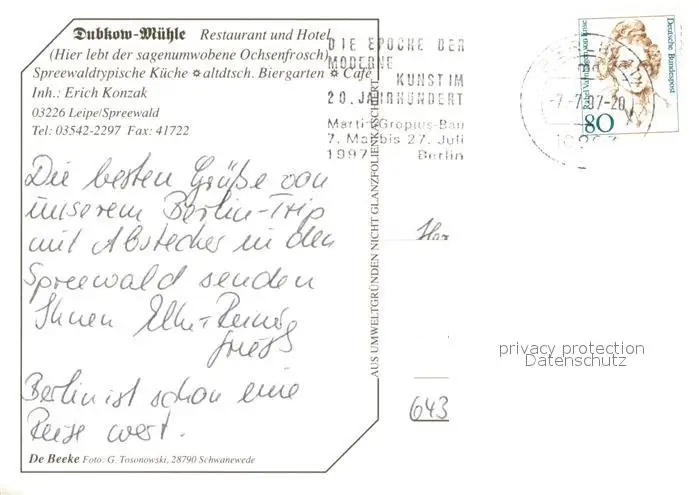 Dubkow-Mühle Restaurant und Hotel
(Hier lebt der sagenumwobene Ochsenfrosch)
Spreewaldtypische Küche ✲ altdtsch. Biergarten ✲ Café
Inh.: Erich Konzak
03226 Leipe/Spreewald
Tel: 03542-2297 Fax: 41722
DIE EPOCHE DER
MODERNE
KUNST IM
20. JAHRHUNDERT
Martin-Gropius-Bau
7. Mai bis 27. Juli
1997 Berlin
Deutsche Bundespost
80
-7.-7.97-20
Die besten Grüße von
unserem Berlin-Trip
mit Abstecher in den
Spreewald senden
Ihnen Elke + Reiner
Berlin ist schon eine
Reise wert.
De Beeke Foto: G. Tosonowski, 28790 Schwanewede
AUS UMWELTGRÜNDEN NICHT GLANZFOLIENKASCHIERT
Her
643
privacy protection
Datenschutz